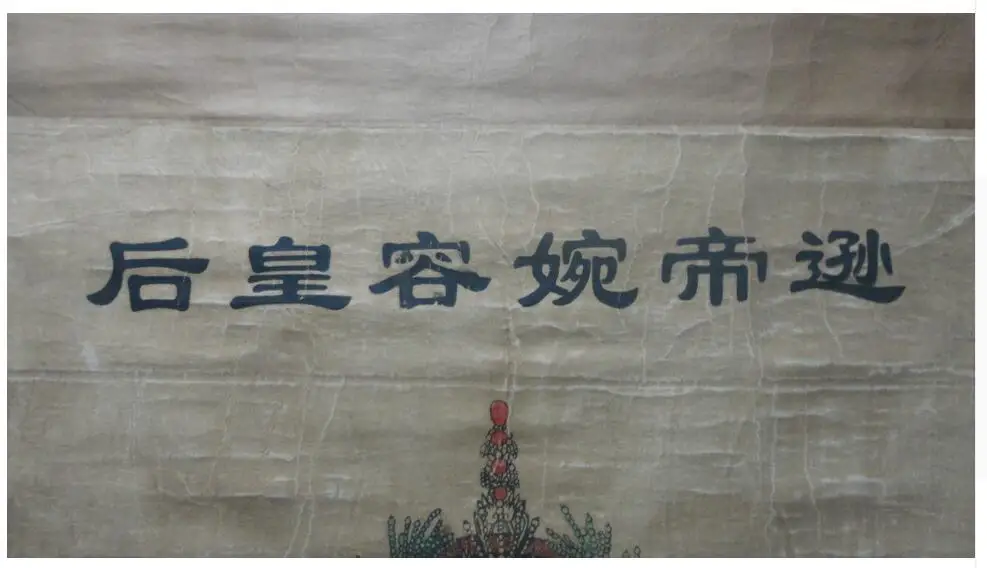 逊帝婉容皇后